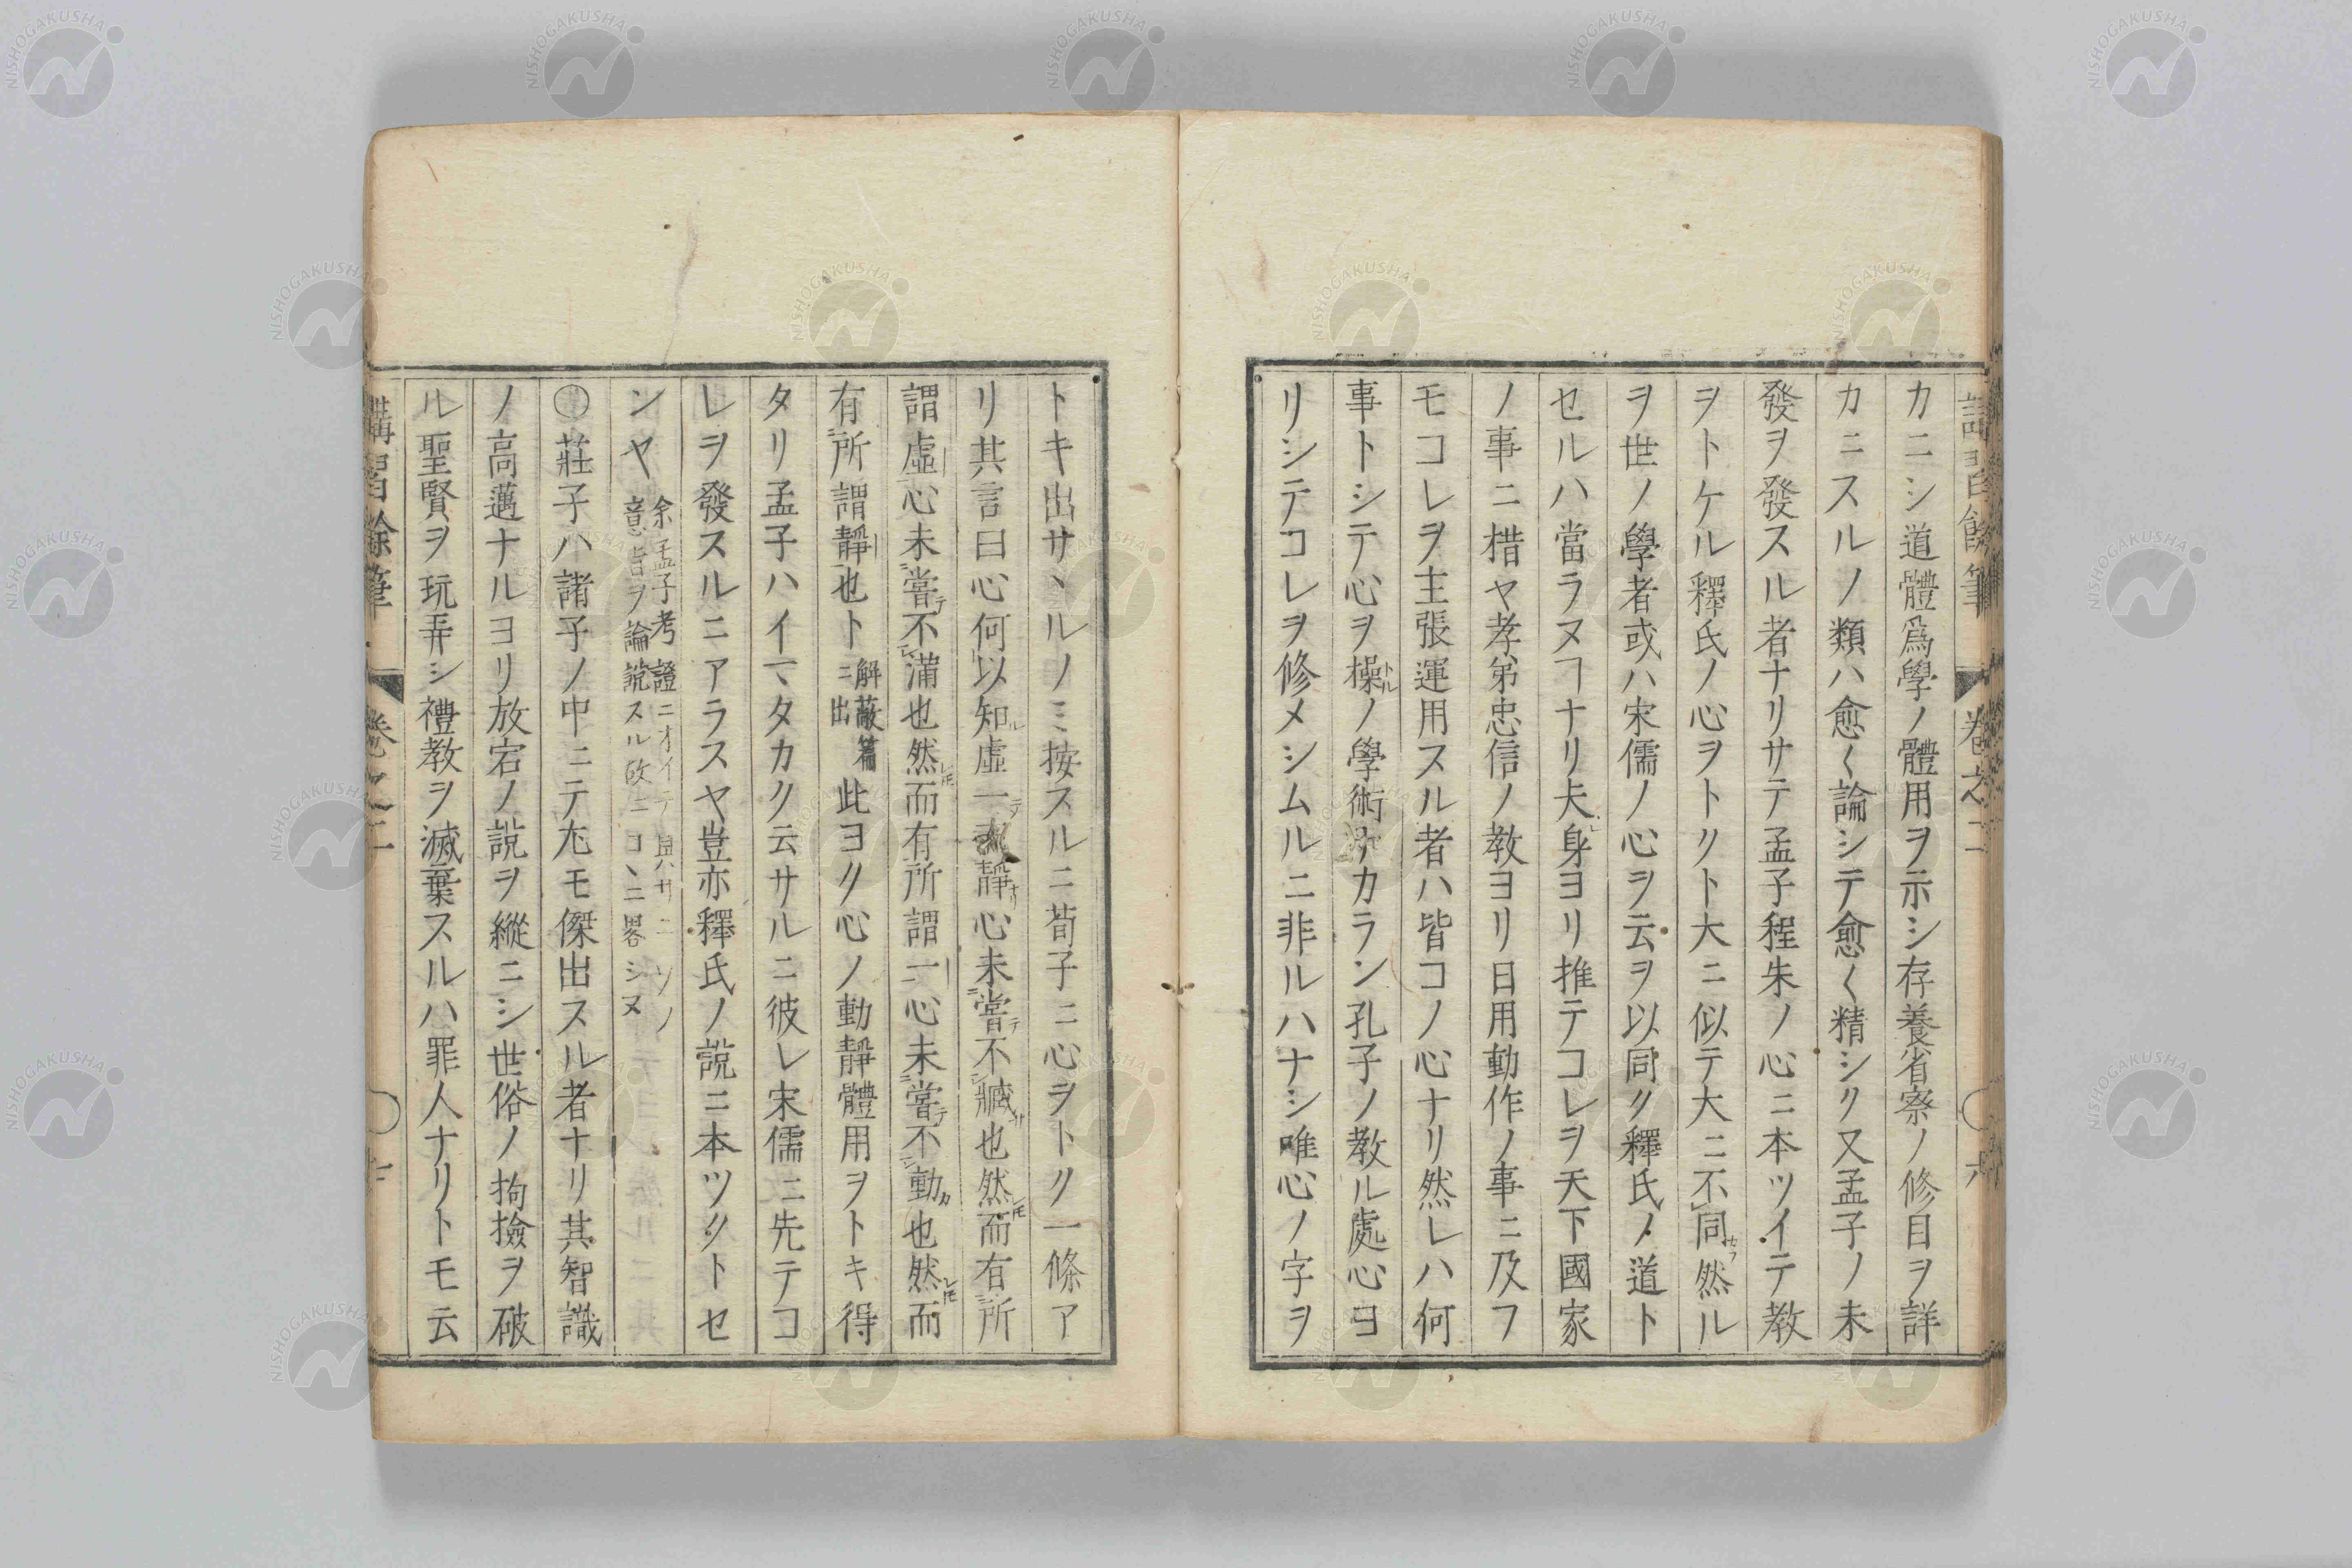 カニシ道體爲學ノ體用ヲ示シ存養省察ノ修目ヲ詳
カニスルノ類ハ愈〱論シテ愈〱精シク又孟子ノ未
發ヲ發スル者ナリサテ孟子程朱ノ心ニ本ツイテ教
ヲトケル釋氏ノ心ヲトクト大ニ似テ大ニ不同然ル
ヲ世ノ學者或ハ宋儒ノ心ヲ云ヲ以同ク釋氏ノ道ト
セルハ當ラヌヿナリ夫身ヨリ推テコレヲ天下國家
ノ事ニ措ヤ孝弟忠信ノ教ヨリ日用動作ノ事ニ及フ
モコレヲ主張運用スル者ハ皆コノ心ナリ然レハ何
事トシテ心ヲ操ノ學術ナカラン孔子ノ教ル處心ヨ
リシテコレヲ修メシムルニ非ルハナシ唯心ノ字ヲ
卷之二
六
トキ出サヽルノミ按スルニ荀子ニ心ヲトク一條ア
リ其言曰心何以知虛一而靜心未嘗不臧也然而有所
謂虛心未嘗不滿也然而有所謂一心未嘗不動也然而
有所謂靜也ト解蔽篇ニ出此ヨク心ノ動靜體用ヲトキ得
タリ孟子ハイマタカク云サルニ彼レ宋儒ニ先テコ
レヲ發スルニアラスヤ豈亦釋氏ノ說ニ本ツクトセ
ンヤ余孟子考證ニオイテ具サニソノ意旨ヲ論說スル故ニコヽニ畧シヌ
〇莊子ハ諸子ノ中ニテ尤モ傑出スル者ナリ其智識
ノ高邁ナルヨリ放宕ノ說ヲ縱ニシ世俗ノ拘撿ヲ破
ル聖賢ヲ玩弄シ禮教ヲ滅棄スルハ罪人ナリトモ云
講習餘筆
卷之二